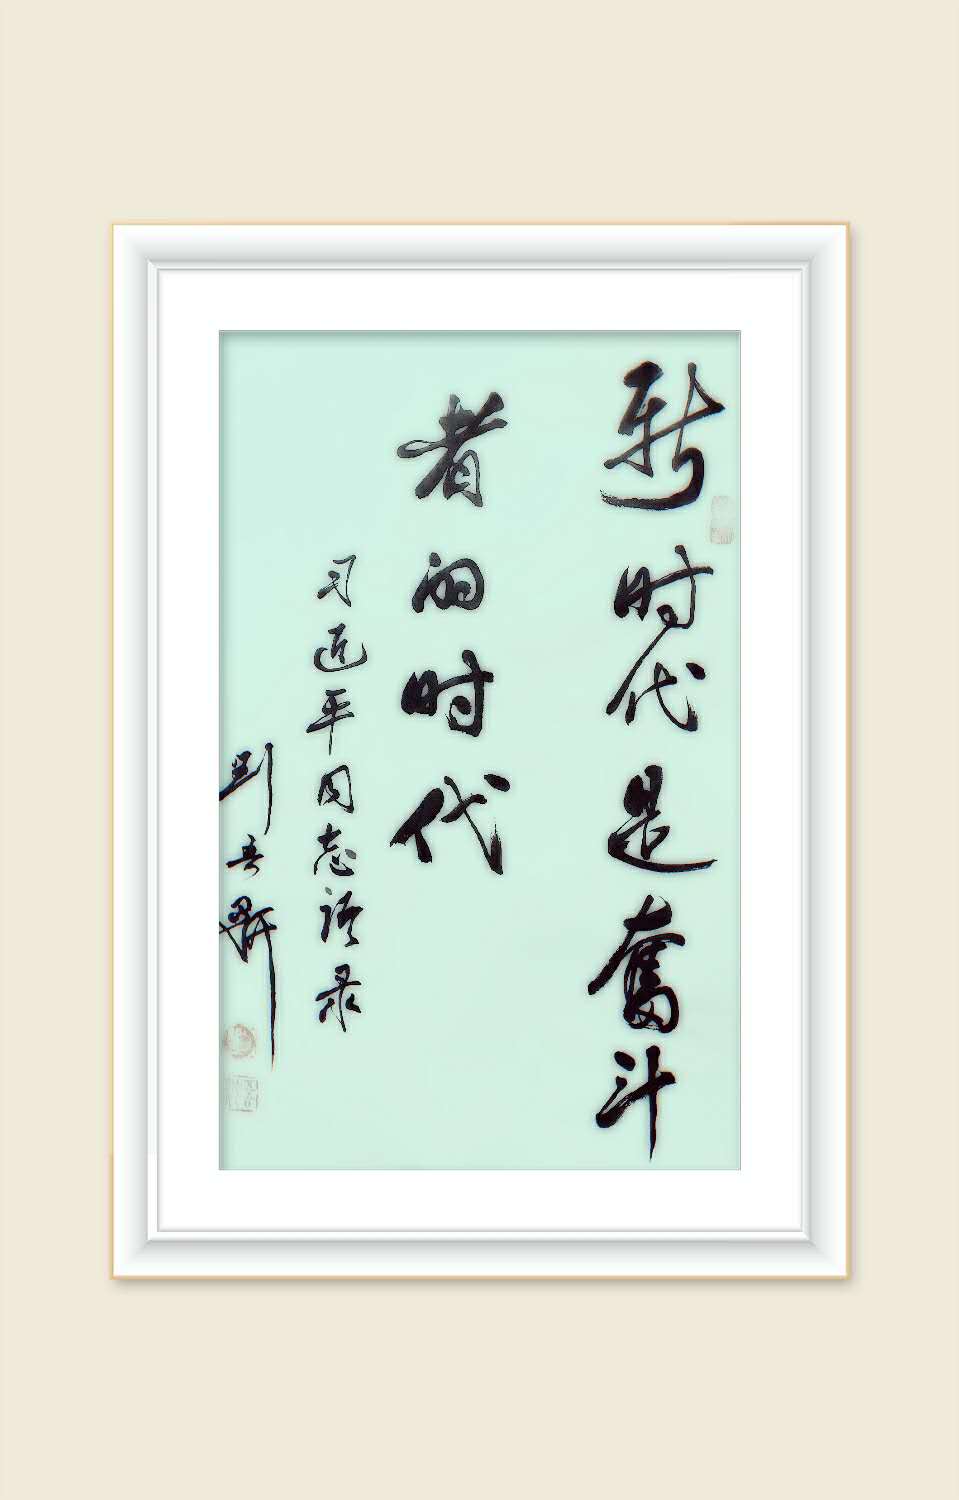 新时代是奋斗
者的时代
习近平同志语录